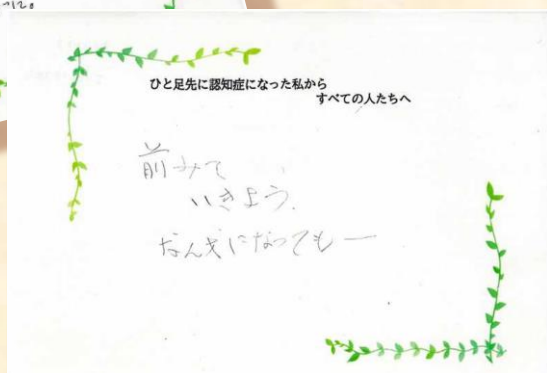 ひと足先に認知症になった私から
すべての人たちへ
前みて
いきよう。
なんさいになっても一